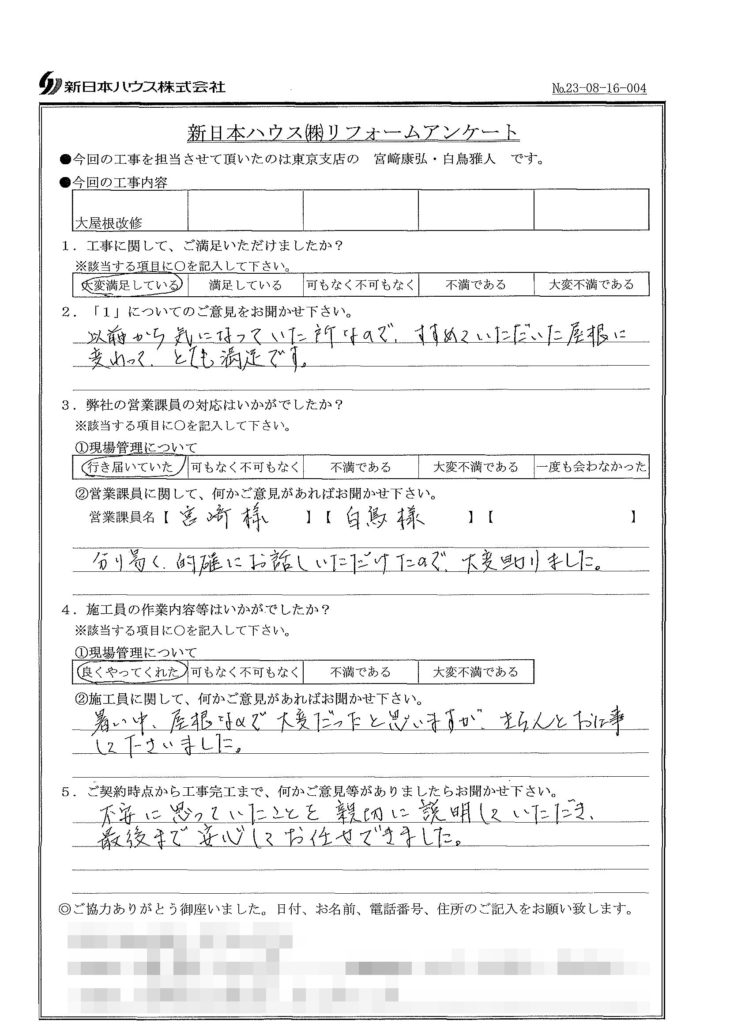 新日本ハウス株式会社
№23-08-16-004
新日本ハウス㈱リフォームアンケート
●今回の工事を担当させて頂いたのは東京支店の 宮﨑康弘・白鳥雅人 です。
●今回の工事内容
大屋根改修
1．工事に関して、ご満足いただけましたか？
※該当する項目に○を記入して下さい。
大変満足している 満足している 可もなく不可もなく 不満である 大変不満である
2．「1」についてのご意見をお聞かせ下さい。
以前から気になっていた所なので、すすめていただいた屋根に
変わって、とても満足です。
3．弊社の営業課員の対応はいかがでしたか？
※該当する項目に○を記入して下さい。
①現場管理について
行き届いていた 可もなく不可もなく 不満である 大変不満である 一度も会わなかった
②営業課員に関して、何かご意見があればお聞かせ下さい。
営業課員名【 宮﨑様 】【 白鳥様 】【 】
分り易く、的確にお話しいただけたので、大変助りました。
4．施工員の作業内容等はいかがでしたか？
※該当する項目に○を記入して下さい。
①現場管理について
良くやってくれた 可もなく不可もなく 不満である 大変不満である
②施工員に関して、何かご意見があればお聞かせ下さい。
暑い中、屋根なので大変だったと思いますが、きちんとお仕事
して下さいました。
5．ご契約時点から工事完工まで、何かご意見等がありましたらお聞かせ下さい。
不安に思っていたことを親切に説明していただき、
最後まで安心してお任せできました。
◎ご協力ありがとう御座いました。日付、お名前、電話番号、住所のご記入をお願い致します。